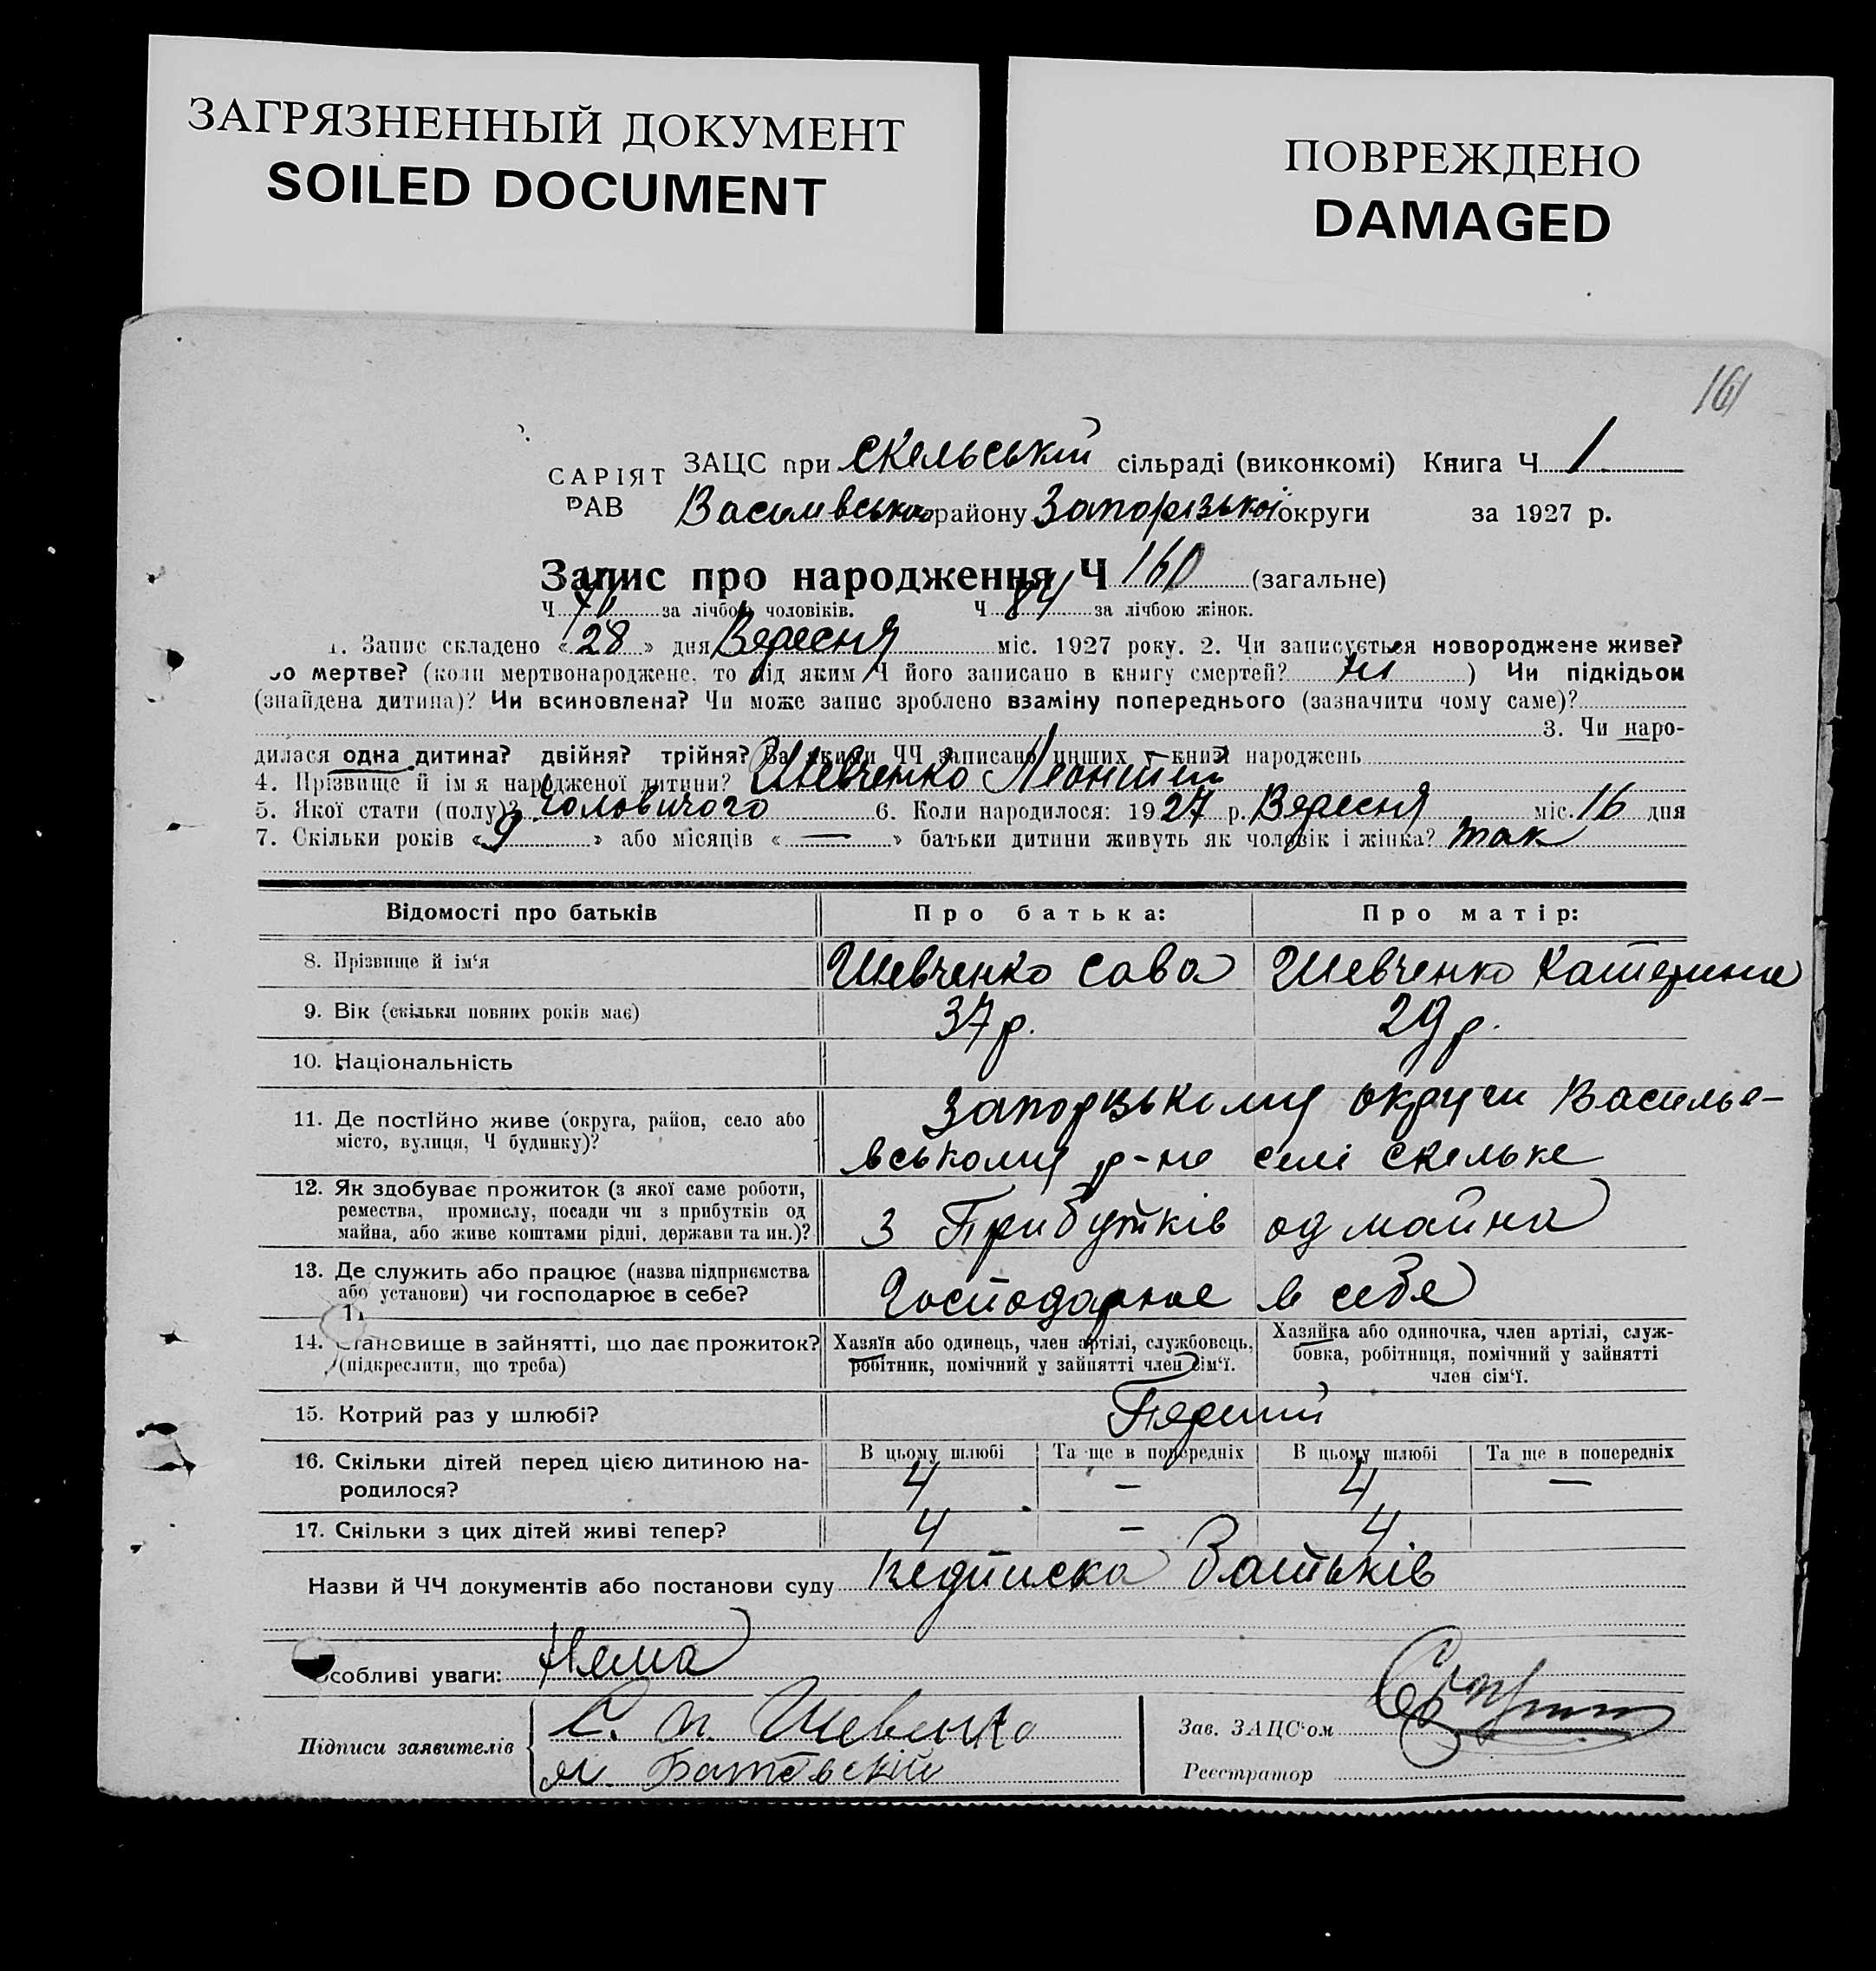 ЗАГРЯЗНЕННЫЙ ДОКУМЕНТ
SOILED DOCUMENT
ПОВРЕЖДЕНО
DAMAGED
161
САРІЯТ ЗАЦС при Скельській сільраді (виконкомі) Книга Ч 1
РАВ Василівського району Запорізької округи за 1927 р.
Запис про народження Ч 160 (загальне)
Ч 76 за лічбою чоловіків. Ч 84 за лічбою жінок.
1. Запис складено «28» дня Вересня міс. 1927 року. 2. Чи записується новороджене живе?
бо мертве? (коли мертвонароджене, то під яким Ч його записано в книгу смертей? ні ) Чи підкідьок
(знайдена дитина)? Чи всиновлена? Чи може запис зроблено взаміну попереднього (зазначити чому саме)?
3. Чи наро-
дилася одна дитина? двійня? трійня? За якими ЧЧ записано инших у книзі народжень
4. Прізвище й ім я народженої дитини? Шевченко Леонтій
5. Якої стати (полу)? Чоловічого 6. Коли народилося: 1927 р. Вересня міс. 16 дня
7. Скільки років «9» або місяців «—» батьки дитини живуть як чоловік і жінка? так
Відомості про батьків Про батька: Про матір:
8. Прізвище й ім‘я Шевченко Сава Шевченко Катерина
9. Вік (скільки повних років має) 37 р. 29 р.
10. Національність
11. Де постійно живе (округа, район, село або Запорізькому округи Василье-
місто, вулиця, Ч будинку)? вському р-не селі Скельке
12. Як здобуває прожиток (з якої саме роботи,
ремества, промислу, посади чи з прибутків од З Прибутків од майна
майна, або живе коштами рідні, держави та ин.)?
13. Де служить або працює (назва підприємства
або установи) чи господарює в себе? Господарює в себе
14. Становище в зайнятті, що дає прожиток? Хазяїн або одинець, член артілі, службовець, Хазяйка або одиночка, член артілі, служ-
(підкреслити, що треба) робітник, помічний у зайнятті член сім‘ї. бовка, робітниця, помічний у зайнятті
член сім‘ї.
15. Котрий раз у шлюбі? Перший
16. Скільки дітей перед цією дитиною на- В цьому шлюбі Та ще в попередніх В цьому шлюбі Та ще в попередніх
родилося? 4 — 4 —
17. Скільки з цих дітей живі тепер? 4 — 4
Назви й ЧЧ документів або постанови суду підписка Батьків
Особливі уваги: Нема
Підписи заявителів С. п. Шевенко Зав. ЗАЦС‘ом
Реєстратор